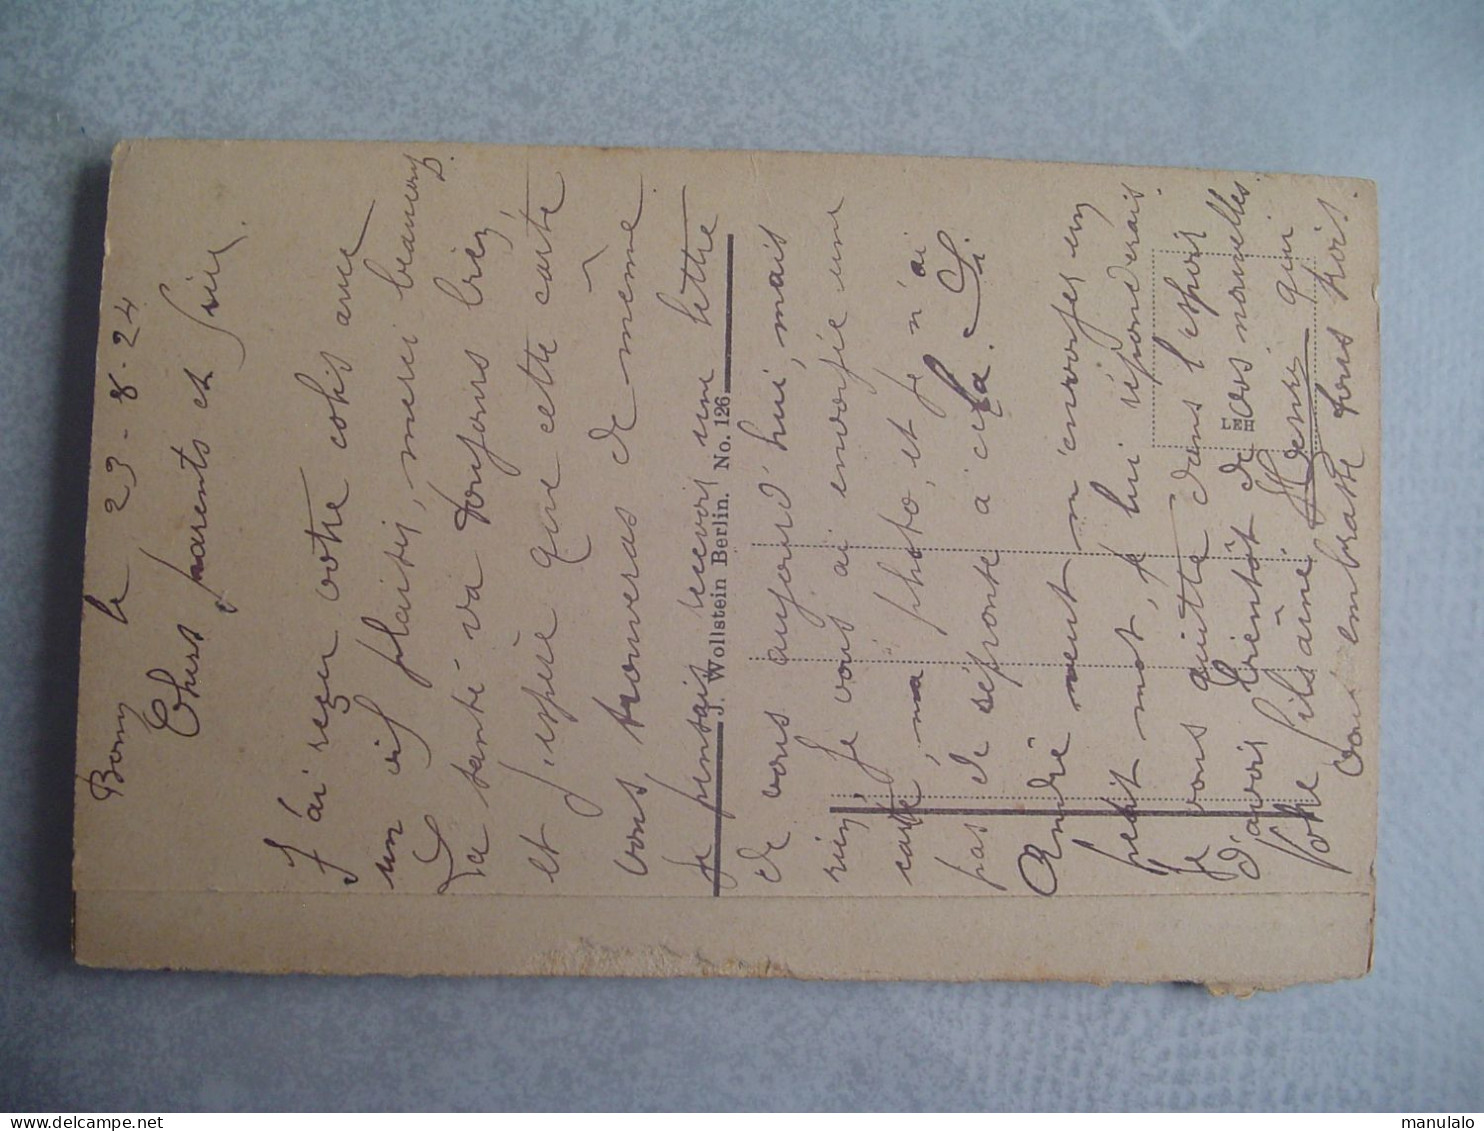 Bonn le 23-8-24
Chers parents et Sœur.
J'ai reçu votre colis avec
un vif plaisir, merci beaucoup.
La santé va toujours bien,
et j'espère que cette carte
vous trouveras de même
Je pensais recevoir une lettre
de vous aujourd'hui, mais
rien. Je vous ai envoyée une
carte, ma photo, et je n'ai
pas de réponse à cela. Si
André veut m'envoyer un
petit mot, je lui réponderais.
Je vous quitte dans l'espoir
d'avoir bientôt de vos nouvelles.
Votre fils aîné. Henri qui
vous embrasse tous trois.
J. Wollstein Berlin. No. 126
LEH
manulalo